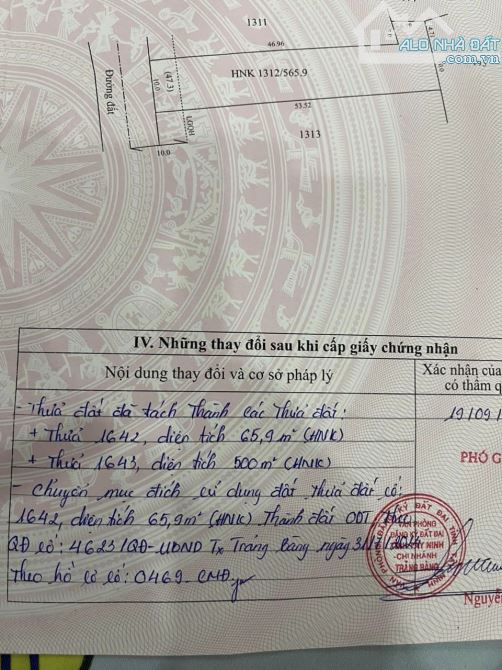 1311
ALO NHÀ ĐẤT
.com.vn
46.96
4.71
HNK 1312/565.9
(47.3)
10.0
Đường đất
LGQH
53.52
1313
10.0
IV. Những thay đổi sau khi cấp giấy chứng nhận
Nội dung thay đổi và cơ sở pháp lý
Xác nhận của
có thẩm q
- Thửa đất đã tách Thành các Thửa đất:
19/09/
+ Thửa 1642, diện tích 65,9 m² (HNK)
+ Thửa 1643, diện tích 500 m² (HNK)
PHÓ G
- Chuyển mục đích sử dụng đất Thửa đất số:
1642, diện tích 65,9 m² (HNK) Thành đất ODT Theo
QĐ số: 4623/QĐ-UBND Tx Trảng Bàng ngày
Theo hồ sơ số: 0469-CNĐ
VĂN PHÒNG
ĐĂNG KÝ ĐẤT ĐAI
TỈNH TÂY NINH
- CHI NHÁNH
TRẢNG BÀNG
Nguyễ